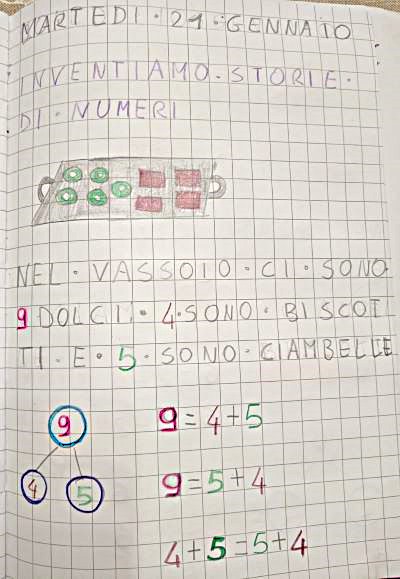 MARTEDI·21·GENNAIO
INVENTIAMO·STORIE·
DI·NUMERI
NEL·VASSOIO·CI·SONO
9 DOLCI·4·SONO·BISCOT
TI·E·5·SONO·CIAMBELLE
9
4 5
9=4+5
9=5+4
4+5=5+4